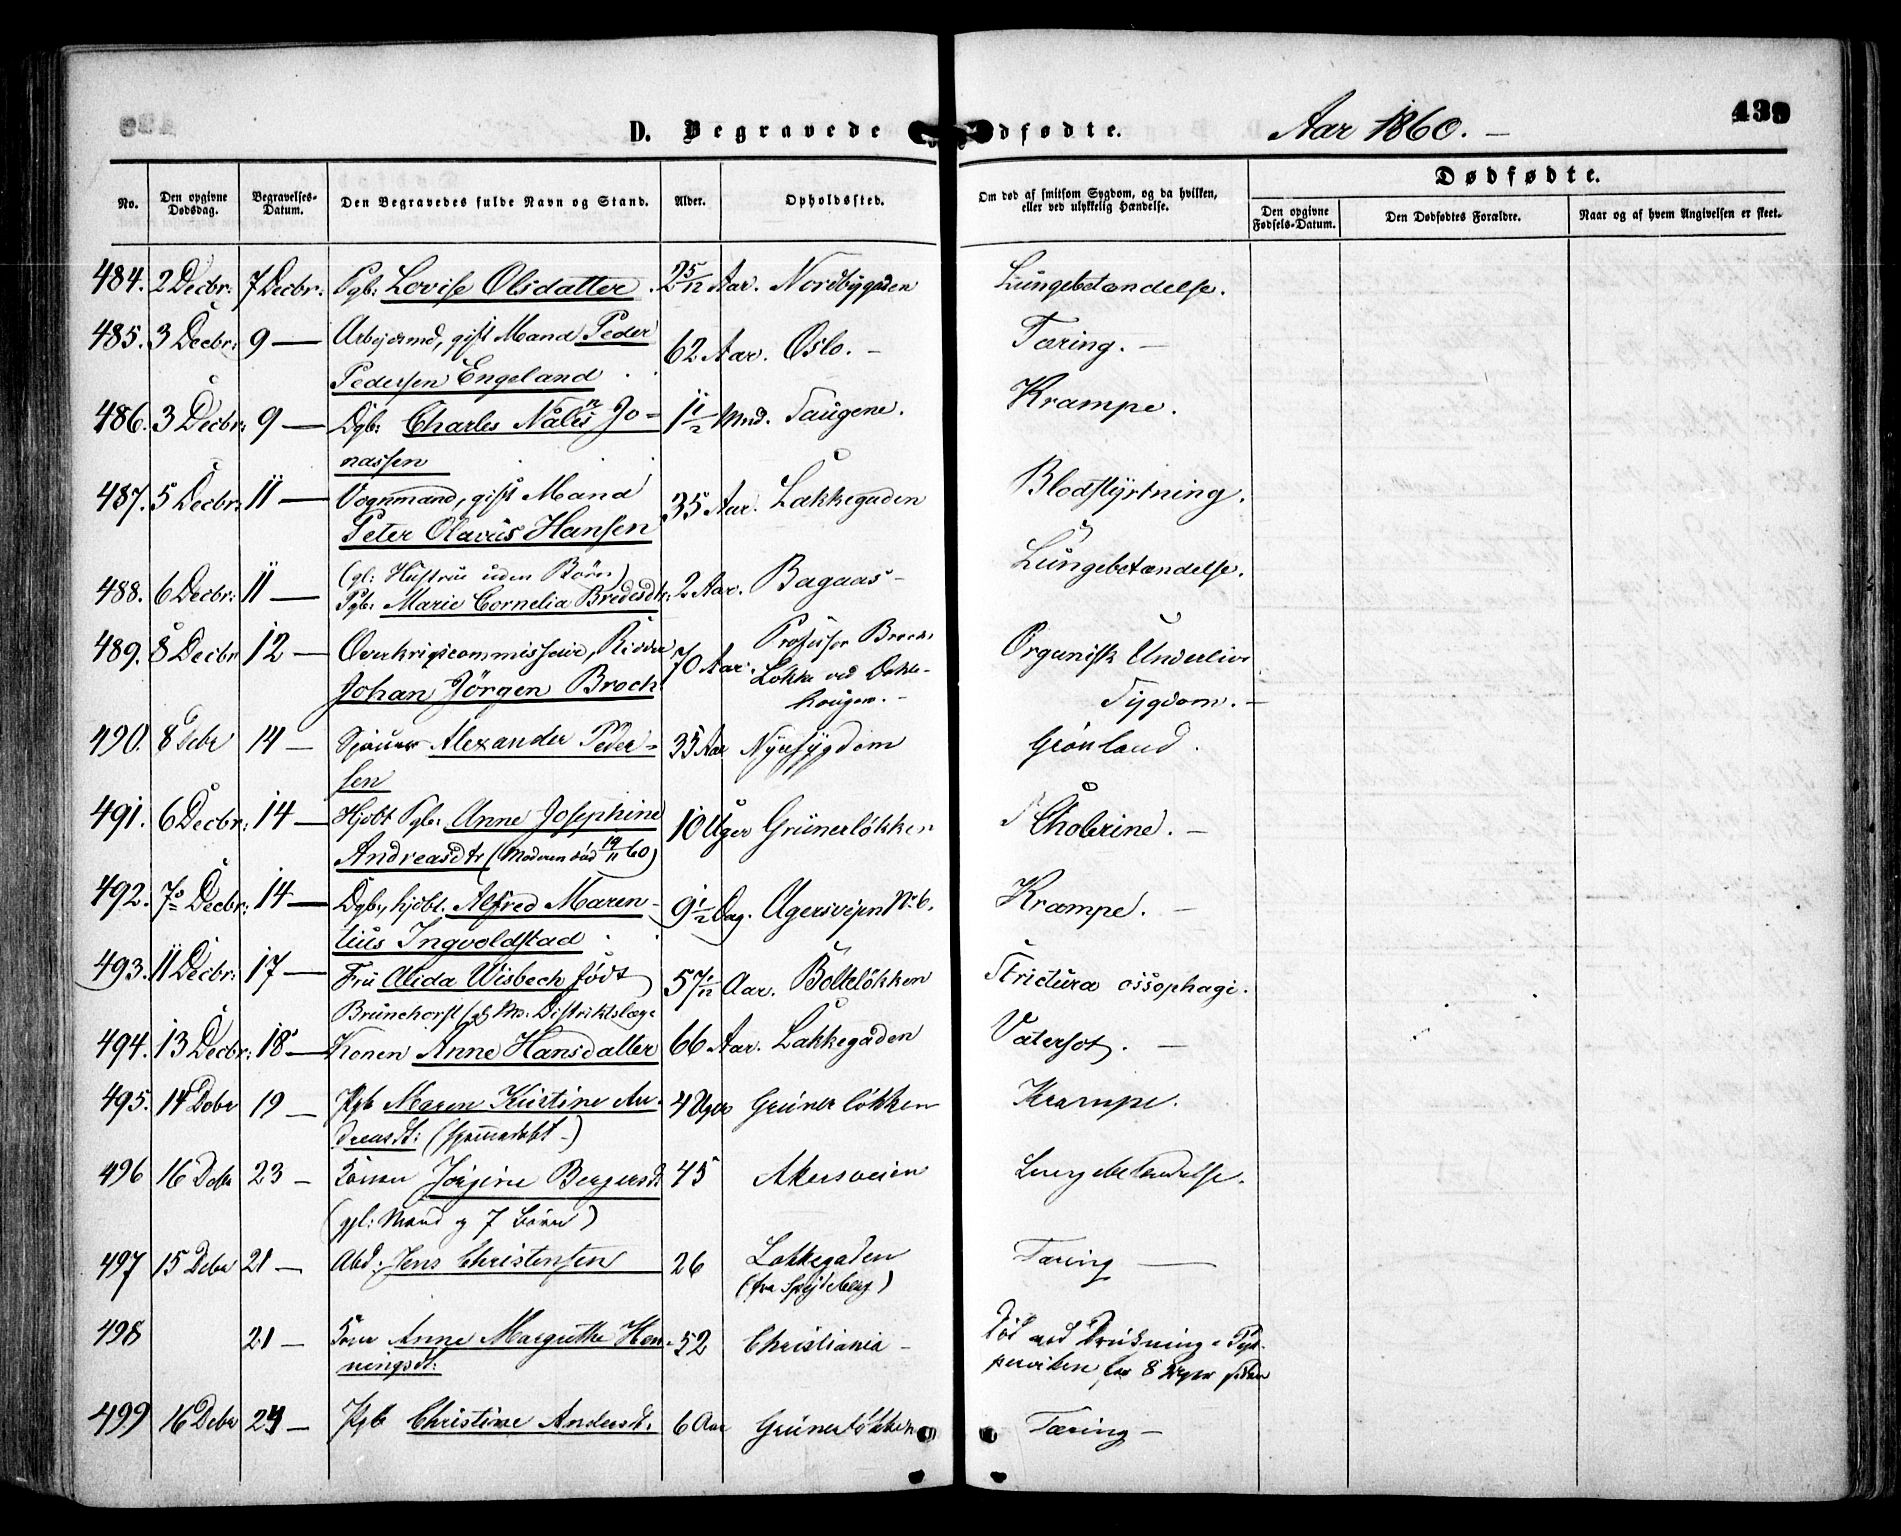 D. Begravede dfødte. Aar 1860. – 439
No. Den opgivne Dødsdag. Begravelses-Datum. Den Begravedes fulde Navn og Stand. Alder. Opholdssted. Om død af smitsom Sygdom, og da hvilken, eller ved ulykkelig Hændelse. Dødfødte.
Den opgivne Fødsels-Datum. Den Dødfødtes Forældre. Naar og af hvem Angivelsen er skeet.
484. 2 Decbr: 7 Decbr: Pgb: Lovise Olsdatter. 2 5/12 Aar. Nordbygaden Lungebetændelse.
485. 3 Decbr: 9 — Arbejdsmd, gift Mand Peder 62 Aar. Oslo. – Tæring. –
Pedersen Engeland
486. 3 Decbr: 9 — Dgb: Charles Jo- 1 1/2 Mnd. Taugene. Krampe.
nassen
487. 5 Decbr: 11 — Vognmand, gift Mand 35 Aar. Lakkegaden Blodstyrtning.
Peter Olavus Hansen
488. 6 Decbr: 11 — (gl: Hustru uden Børn) 2 Aar. Bagaas – Lungebetændelse.
Pgb: Marie Cornelia Bredesdtr:
489. 8 Decbr 12 — Overkrigscommissair, Ridder 70 Aar. Professor Brochs Organisk Underlivs
Johan Jörgen Broch Løkke ved Sygdom. –
hougen. –
490. 8 Debr 14 – Sjouer Alexander Peder- 35 Aar Nyresygdom Grønland.
sen
491. 6 Decbr: 14 — Hjdbt Pgb: Anne Josephine 10 Uger Grünerløkken Cholerine. –
Andreasdtr (Moderen død 19/11 60)
492. 7 Decbr: 14 — Dgb., hjdbt. Alfred Maren- 9 1/2 Dag. Agersvejen No 6. Krampe. –
tius Ingvoldstad
493. 11 Decbr: 17 — Fru Alida Wisbech født 57 1/12 Aar. Bolteløkken Strictura ossophagi.
Brünchorst Distriktslæge
494. 13 Decbr: 18 — Konen Anne Hansdatter 66 Aar. Lakkegaden Vatersot. –
495. 14 Debr 19 – Pgb Maren Kirstine An- 4 Uger Grünerløkken Krampe.
dreasdt: (hjemmedøbt –)
496 16 Debr 23 – Konen Jørgine Bergersdt 45 Akersveien Lungebetændelse.
(gjl: Mand og 7 Børn)
497 15 Debr 21 – Abd. Jens Christensen 26 Lakkegaden Tæring —
(fra Spydeberg)
498 21 – Konen Anne Margrethe Hen- 52 Christiania – Død ved Drukning i Pip-
ningsdt: perviken for 8 Uger siden
499 16 Debr 24 – Pgb Christine Andersdt. 6 Aar Grünerløkken Tæring –